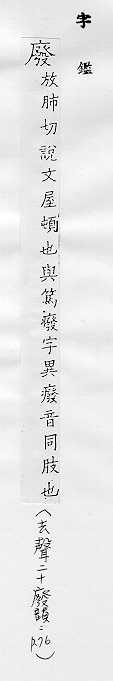 字鑑
廢放肺切說文屋頓也與篤癈字異癈音同肢也（去聲二十廢韻：p.76）